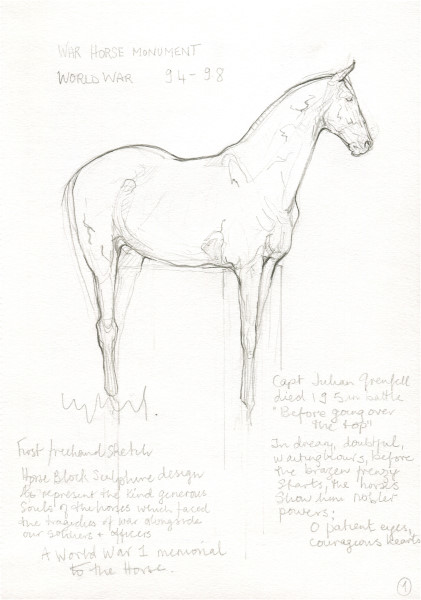 WAR HORSE MONUMENT
WORLD WAR 94-98
Capt Julian Grenfell
died 195 in battle
"Before going over
the top"
In dreary, doubtful,
waiting hours, before
the brazen frenzy
Starts, the horses
Show him nobler
powers;
O patient eyes,
courageous hearts
First freehand Sketch
Horse Block Sculpture design
to represent the kind generous
Souls of the horses which faced
the tragedies of war alongside
our soldiers + officers
A World War 1 memorial
to the Horse.
1